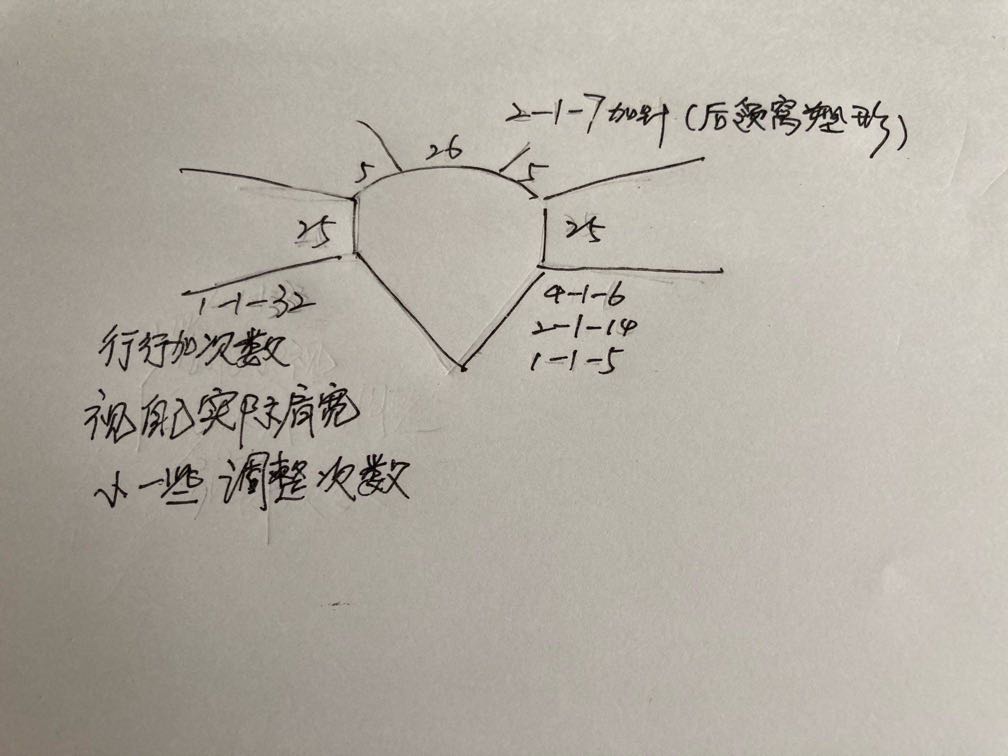 2-1-7加针(后领窝塑形)
5 26 5
25 25
1-1-32
4-1-6
2-1-14
1-1-5
行行加次数
视自己实际肩宽
小一些 调整次数